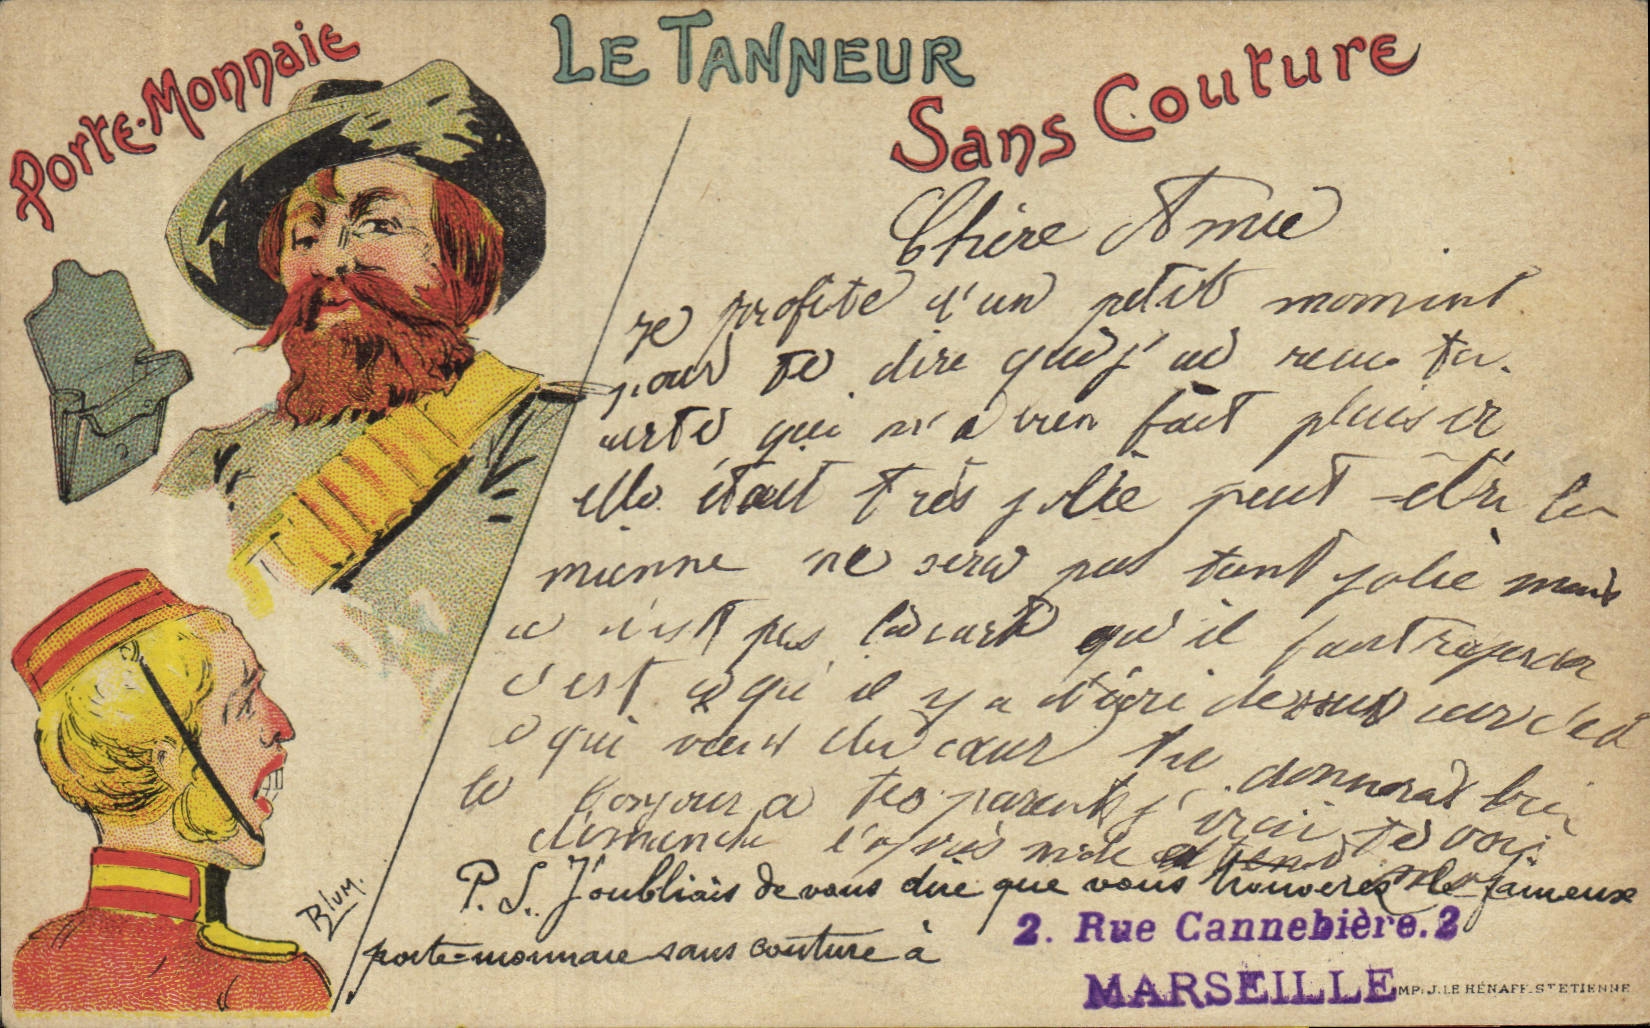 Porte-Monnaie
LE TANNEUR
Sans Couture
Chère Amie
je profite d'un petit moment
pour te dire que j'ai recu ta
carte qui m'a bien fait plaisir
elle était très jolie peut-être la
mienne ne sera pas tant jolie mais
ce n'est pas la carte qu'il faut regarder
c'est ce qu'il y a d'écri dessus car c'est
ce qui vient du cœur tu donneras bien
le bonjour a tes parents j'irai te voir
dimanche l'après midi
P.S. J'oubliais de vous dire que vous trouverez le fameux
porte-monnaie sans couture à
2. Rue Cannebière. 2
MARSEILLE
Blum.
IMP. J. LE HÉNAFF. ST ETIENNE